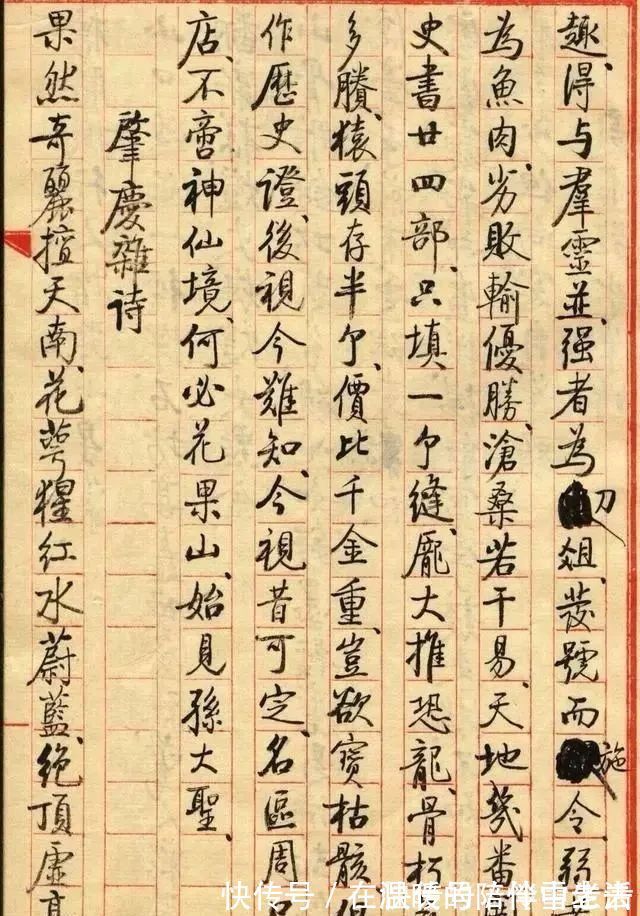 趣、得与羣靈並、强者為刀俎、發號而施令、弱
為魚肉、劣敗輸優勝、滄桑若干易、天地幾番
史書廿四部、只填一个縫、龐大推恐龍、骨朽
多賸、猿頭存半个、價比千金重、豈欲寶枯骸、
作歷史證、後視今難知、今視昔可定、名區周
店、不啻神仙境、何必花果山、始見孫大聖、
肇慶雜诗
果然奇麗擅天南、花萼猩红水蔚藍、绝頂虚
快传号 /